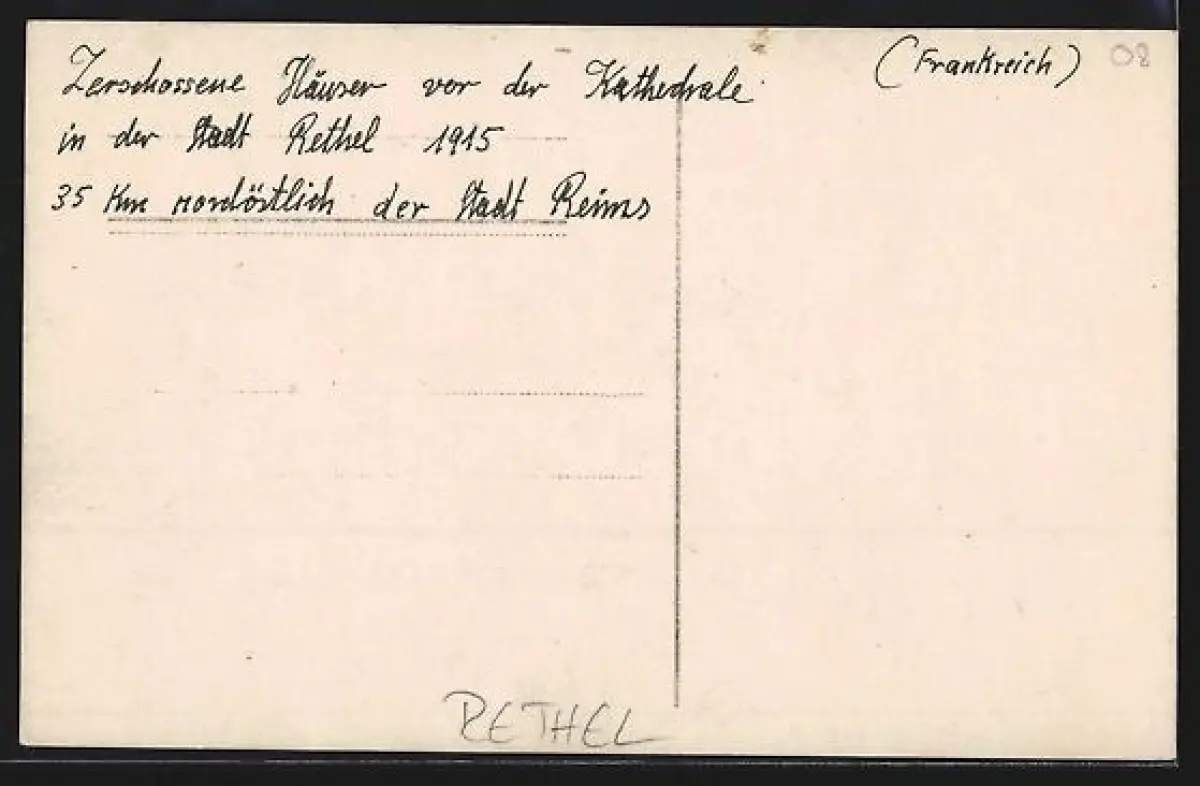 Zerschossene Häuser vor der Kathedrale
(Frankreich)
08
in der Stadt Rethel 1915
35 Km nordöstlich der Stadt Reims
RETHEL